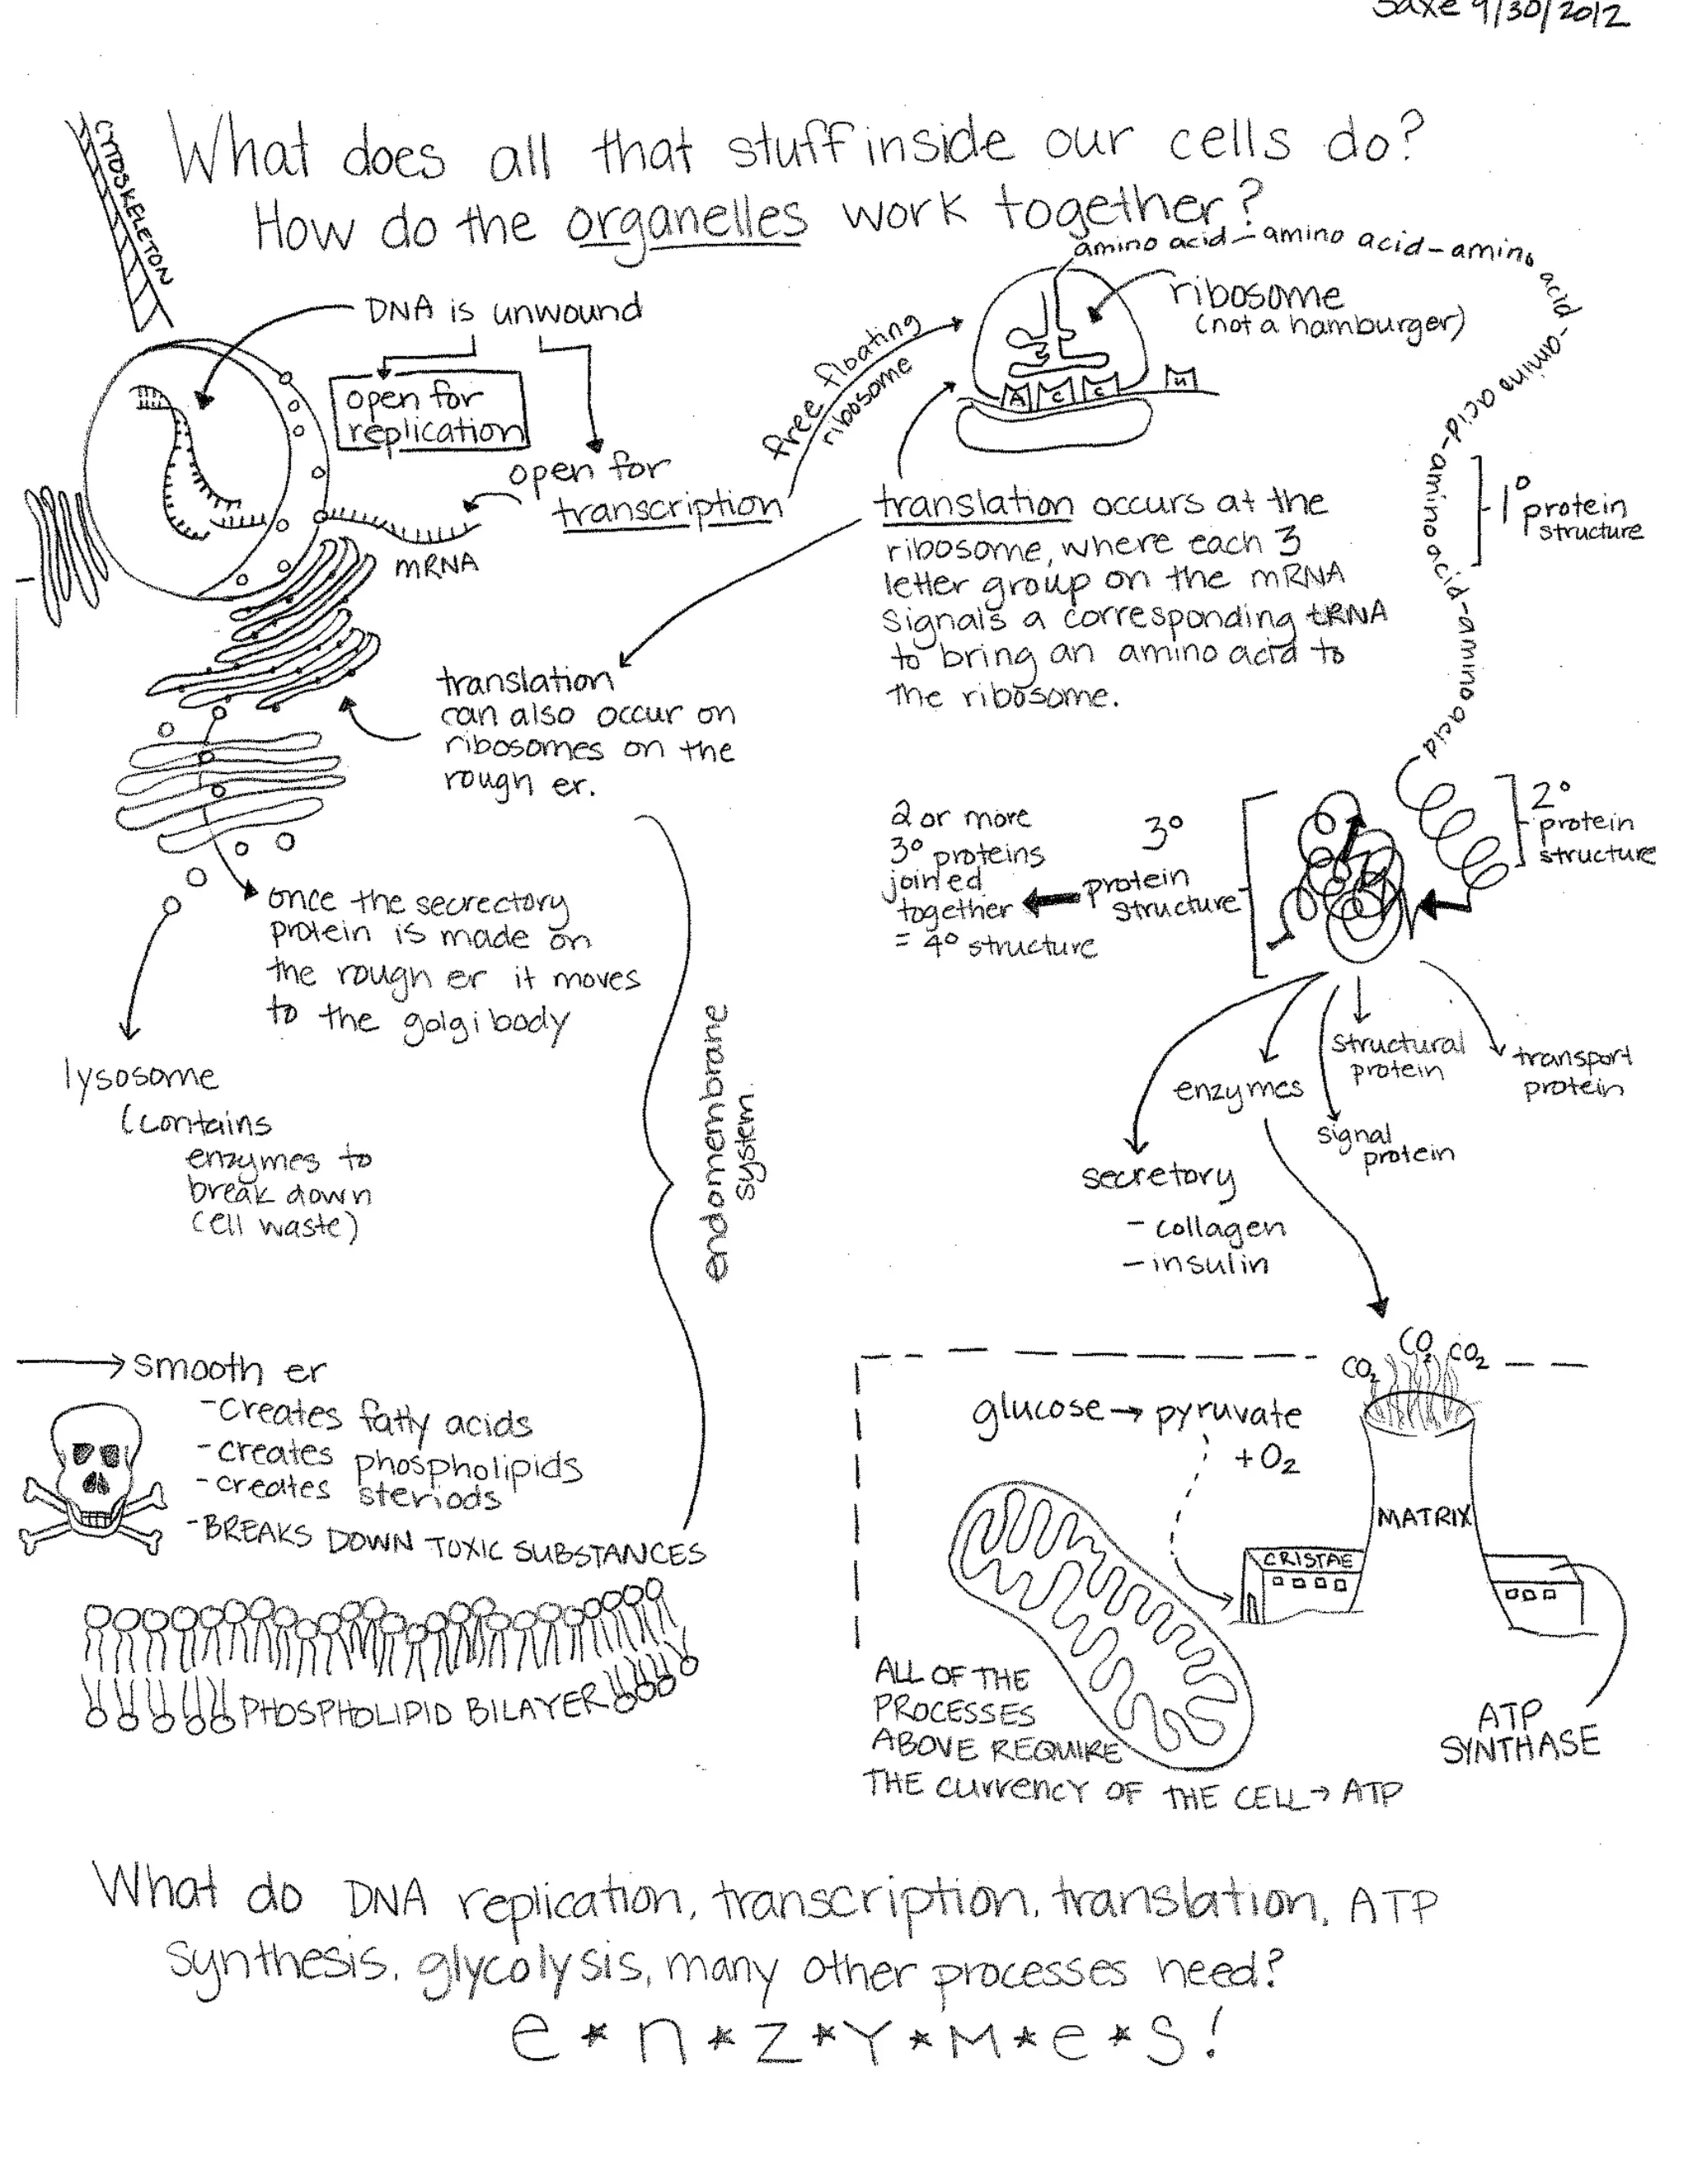 Saxe 9/30/2012
CYTOSKELETON
What does all that stuff inside our cells do?
How do the organelles work together?
amino acid - amino acid - amino acid - amino acid - amino acid - amino acid
DNA is unwound
ribosome
(not a hamburger)
free floating
ribosome
open for
replication
A C C U
open for
transcription
mRNA
1° protein
structure
translation occurs at the
ribosome, where each 3
letter group on the mRNA
signals a corresponding tRNA
to bring an amino acid to
the ribosome.
translation
can also occur on
ribosomes on the
rough er.
2°
protein
structure
3°
protein
structure
2 or more
3° proteins
joined
together
= 4° structure
once the secrectory
protein is made on
the rough er it moves
to the golgi body
endomembrane
system.
lysosome
(contains
enzymes to
break down
cell waste)
structural
protein
transport
protein
enzymes
signal
protein
secretory
- collagen
- insulin
smooth er
- creates fatty acids
- creates phospholipids
- creates steriods
- BREAKS DOWN TOXIC SUBSTANCES
PHOSPHOLIPID BILAYER
CO2 CO2 CO2
glucose → pyruvate
+ O2
MATRIX
CRISTAE
ATP
SYNTHASE
ALL OF THE
PROCESSES
ABOVE REQUIRE
THE CURRENCY OF THE CELL → ATP
What do DNA replication, transcription, translation, ATP
synthesis, glycolysis, many other processes need?
e * n * z * Y * M * e * S!